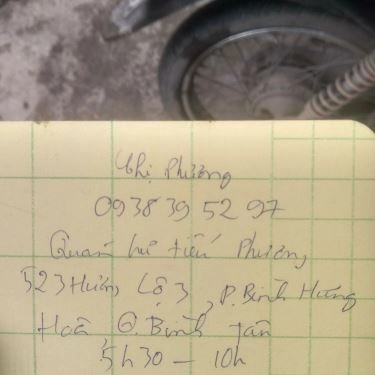 Chị Phương
0938 39 52 97
Quán hủ tiếu Phương
523 Hương Lộ 3, P. Bình Hưng
Hoà Q. Bình Tân
5h30 - 10h